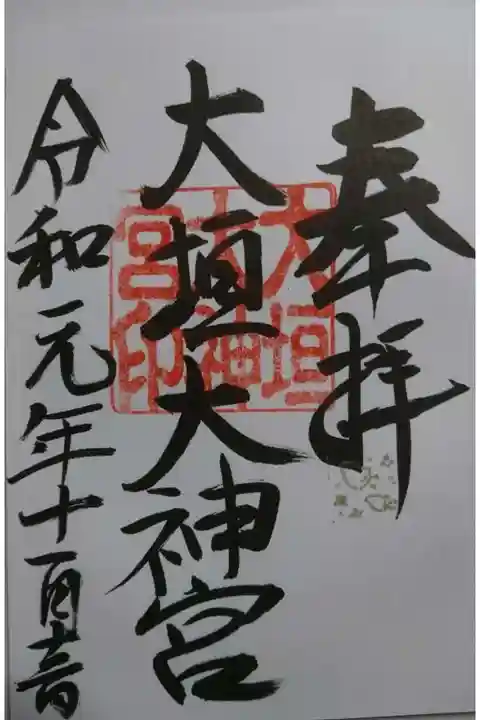 奉拝
大垣大神宮
令和元年十一月
大垣
大神
宮印